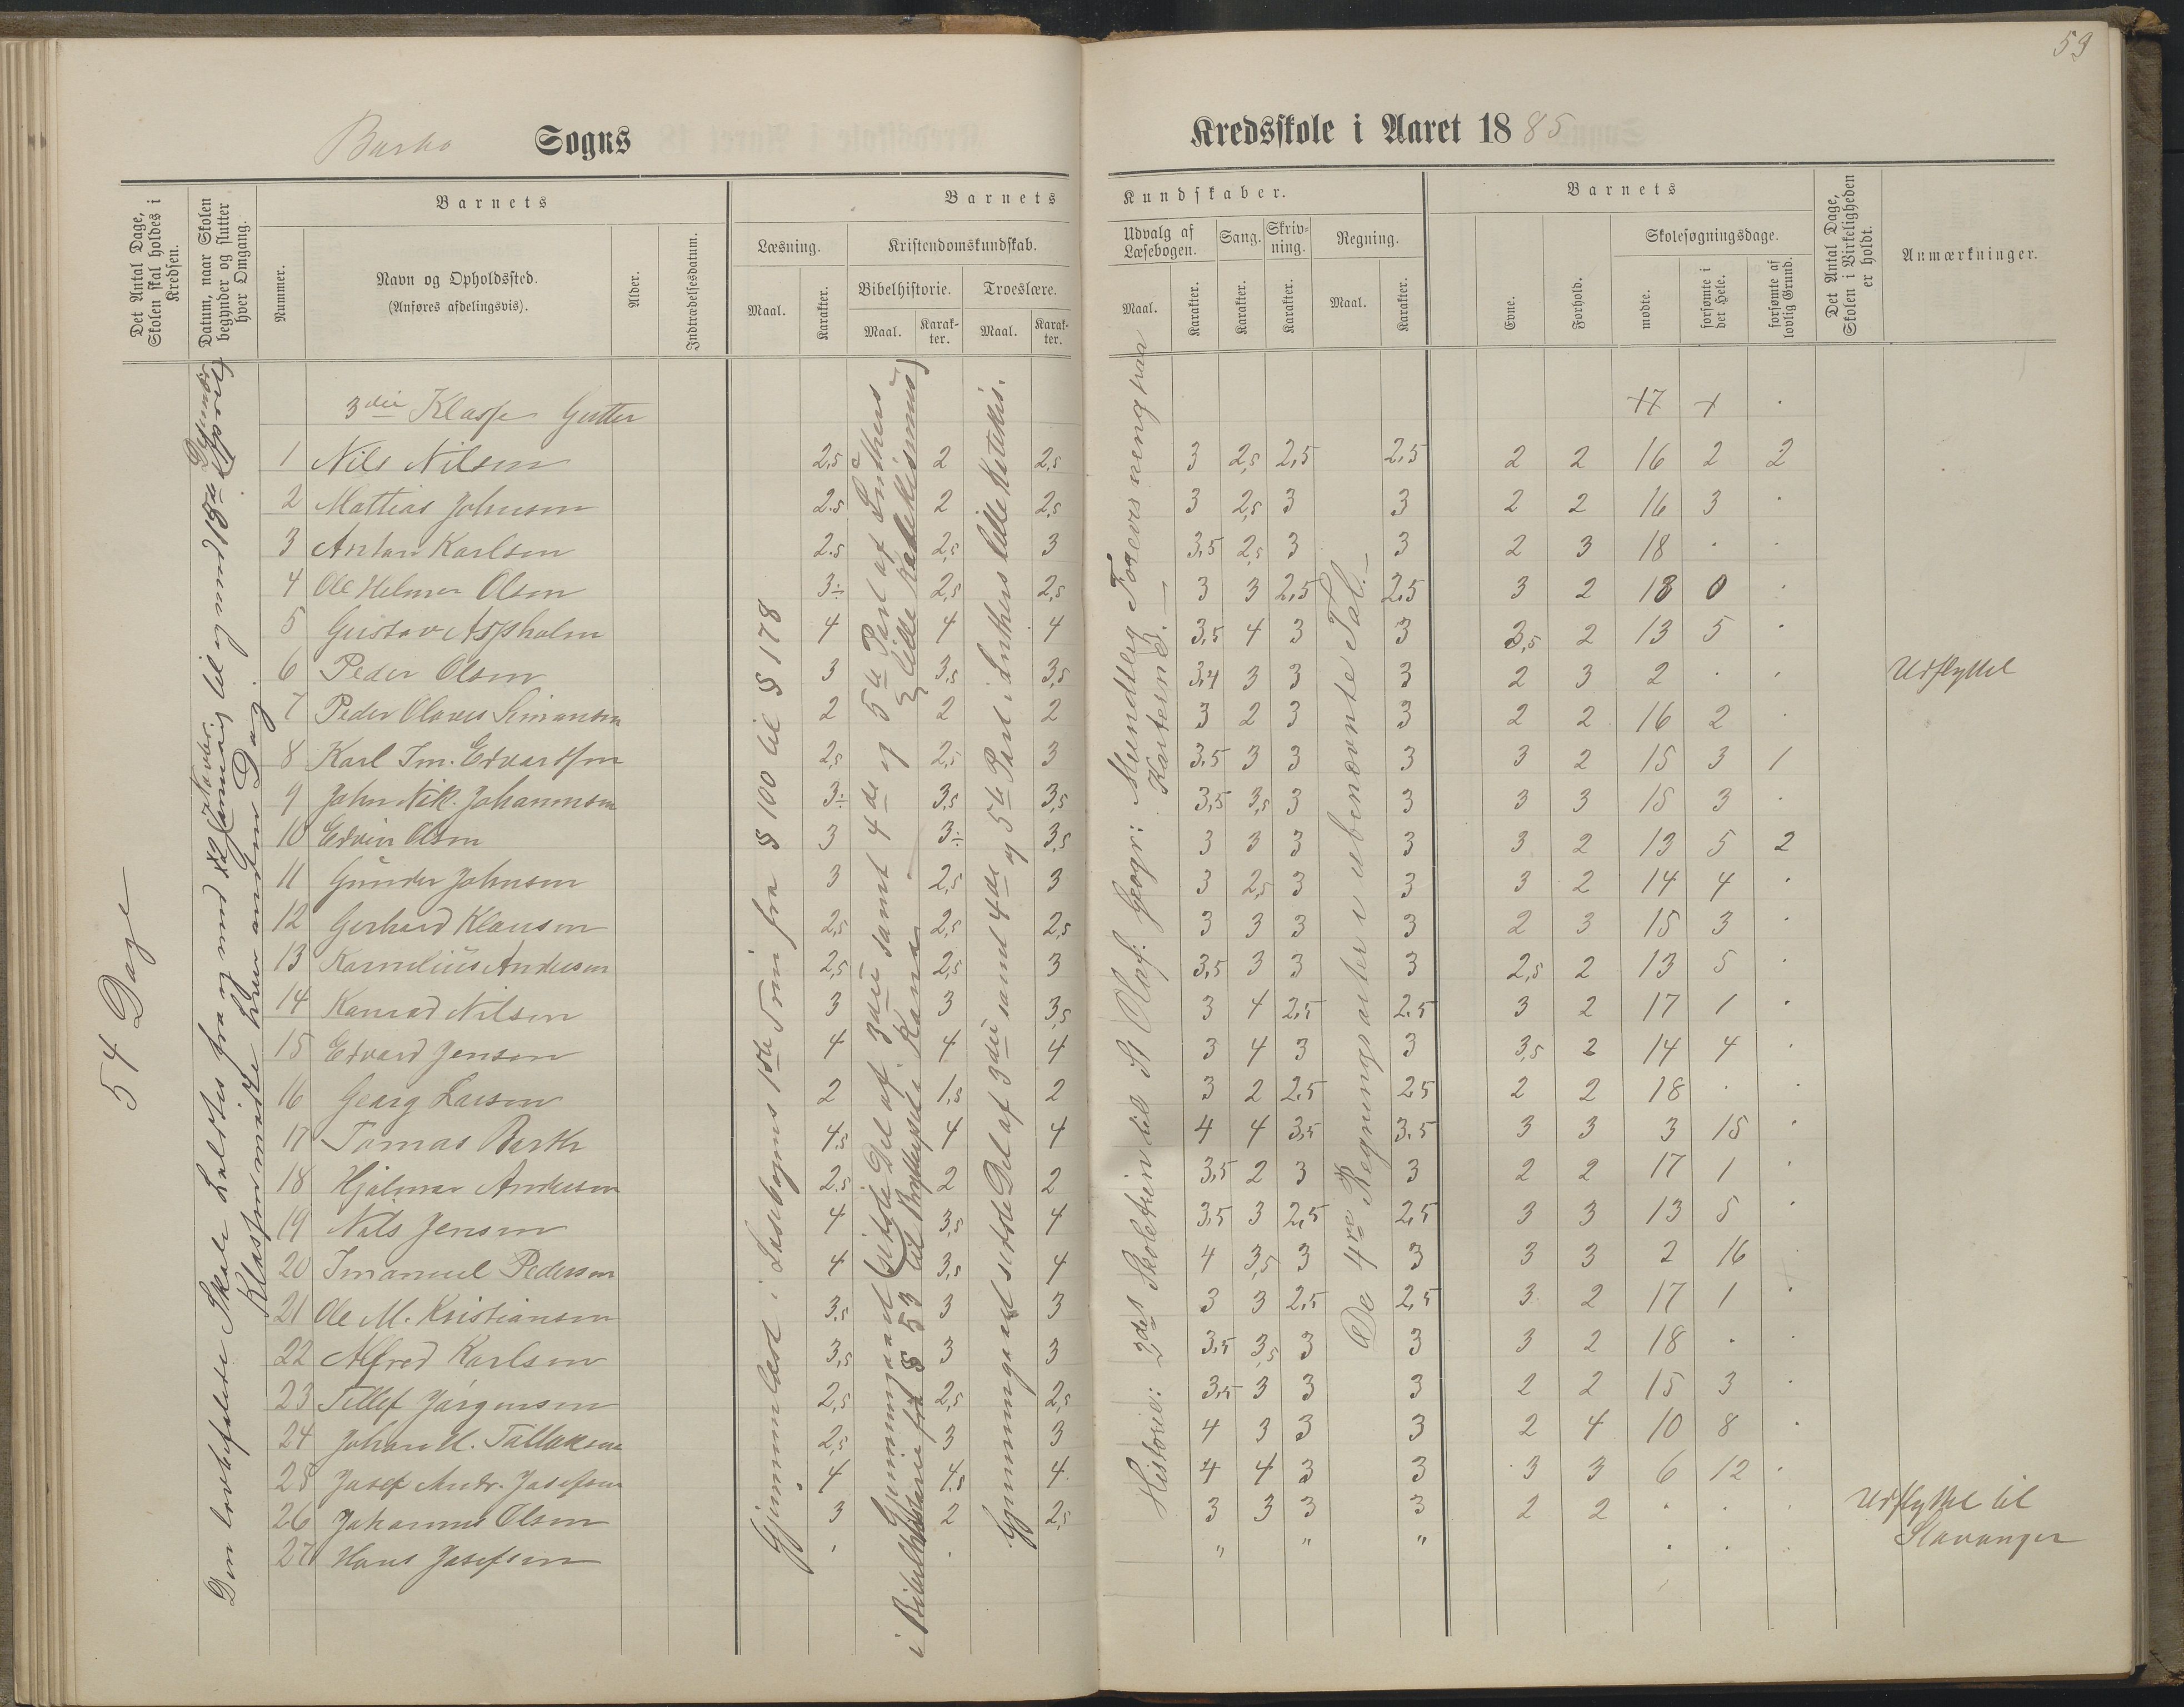 59
Barbo Sogns
Kredsskole i Aaret 1885
Det Antal Dage, Skolen skal holdes i Kredsen.
Datum, naar Skolen begynder og slutter hver Omgang.
Nummer.
Barnets
Navn og Opholdssted.
(Anføres afdelingsvis).
Alder.
Indtrædelsesdatum.
Barnets Kundskaber.
Læsning.
Maal.
Karakter.
Kristendomskundskab.
Bibelhistorie.
Maal.
Karakter.
Troeslære.
Maal.
Karakter.
Udvalg af Læsebogen.
Maal.
Karakter.
Sang.
Karakter.
Skrivning.
Karakter.
Regning.
Maal.
Karakter.
Barnets
Evne.
Forhold.
Skolesøgningsdage.
mødte.
forsømte i det Hele.
forsømte af lovlig Grund.
Det Antal Dage, Skolen i Virkeligheden er holdt.
Anmærkninger.
54 Dage
Den lovbefalede Skole holdtes fra og med
til og med 18de April
Klassen mødte hver anden Dag.
Gjennemlæst i Læsebogens 1ste Trin fra § 100 til § 178
Gjennemgaaet sidste Del af 3die samt 4de og 5te Part af Luthers lille Katekismus
i Bibelhistorie fra § 53 til Brylluppet i Kana
Gjennemgaaet sidste Del af 3die samt 4de og 5te Part i Luthers lille Katekis.
Historie: 2det Skoletrin til St Olaf. Geogr: Mundtlig Foreviisning paa Karterne.
De 4re Regningsarter i ubenævnte Tal.
3die Klasse Gutter 17 + .
1 Nils Nilsen 2,5 2 2,5 3 2,5 2,5 2,5 2 2 16 2 2
2 Mattias Johnsen 2.5 2 2,5 3 2,5 3 3 2 2 16 3 .
3 Anton Karlsen 2.5 2,5 3 3,5 2,5 3 3 2 3 18 . .
4 Ole Helmer Olsen 3÷ 2,5 2,5 3 3 2,5 2.5 3 2 18 0 .
5 Gustav Aspholm 4 4 4 3,5 4 3 3 3,5 2 13 5 .
6 Peder Olsen 3 3,5 3,5 3,4 3 3 3 2 3 2 . . Udflyttet
7 Peder Olaves Simonsen 2 2 2 3 2 3 3 2 2 16 2 .
8 Karl Im. Edvardsen 2,5 2,5 3 3.5 3 3 3 3 2 15 3 1
9 John Nik. Johannesen 3÷ 3,5 3,5 3,5 3,5 3 3 3 3 15 3 .
10 Edvin Olsen 3 3÷ 3,5 3 3 3 3 3 2 13 5 2
11 Gunder Johnsen 3 2,5 3 3 2,5 3 3 3 2 14 4 .
12 Gerhard Klausen 2,5 2,5 2,5 3 3 3 3 2 3 15 3 .
13 Kornelius Andersen 2,5 2,5 3 3,5 3 3 3 2,5 2 13 5 .
14 Konrad Nilsen 3 3 3,5 3 4 2,5 2.5 3 2 17 1 .
15 Edvard Jensen 4 4 4 3 4 3 3 3,5 2 14 4 .
16 Georg Larsen 2 1,5 2 3 2 2.5 2.5 2 2 18 . .
17 Tomas Barth 4.5 4 4 4 4 3,5 3.5 3 3 3 15 .
18 Hjalmar Andersen 2.5 2 2 3,5 2 3 3 2 2 17 1 .
19 Nils Jensen 4 3,5 4 3,5 3 2,5 2,5 3 3 13 5 .
20 Imanuel Pedersen 4 3,5 4 4 3,5 3 3 3 3 2 16 .
21 Ole M. Kristiansen 3,5 3 3 3 3 2,5 2,5 3 2 17 1 .
22 Alfred Karlsen 3,5 3 3 3,5 3,5 3 3 3 2 18 . .
23 Tellef Jörgensen 2,5 2,5 2,5 3,5 3 3 3 2 2 15 3 .
24 Johan M. Tallaksen 2,5 3 3 4 3 3 3 2 4 10 8 .
25 Josef Andr. Josefsen 4 4.5 4. 4 4 3 3 3 3 6 12 .
26 Johannes Olsen 3 2 2,5 3 3 3 3 2 2 . . . Udflyttet til
27 Hans Josefsen . . " " " . . . Stavanger